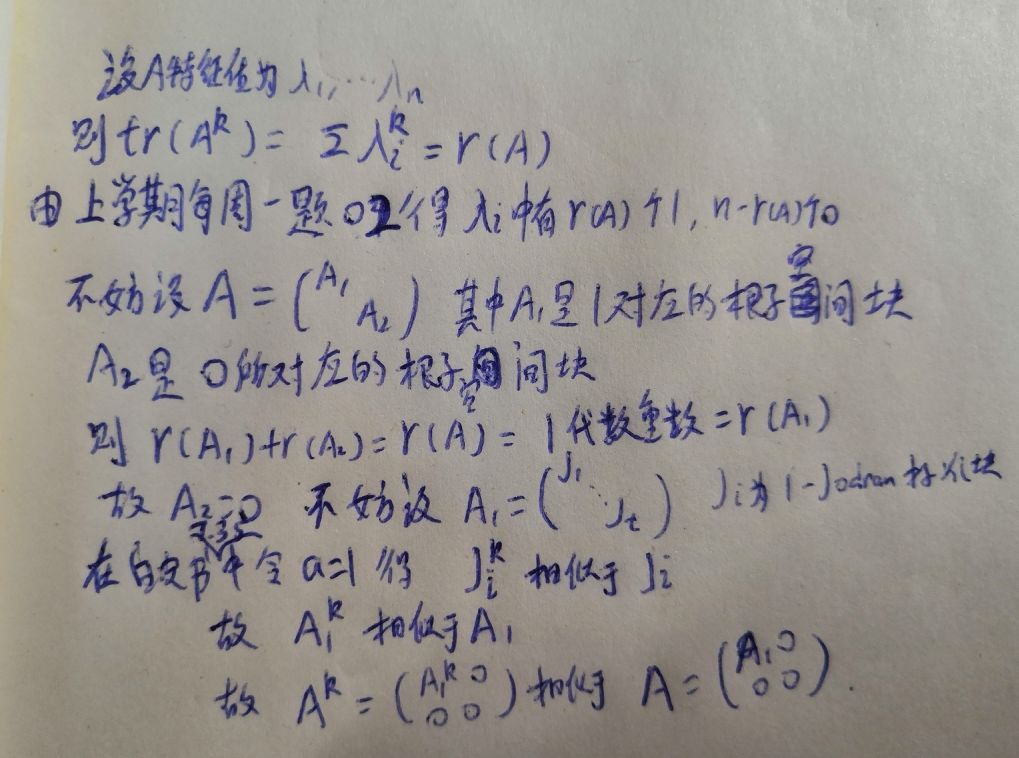 设A特征值为 λ₁,…λₙ
则 tr(Aᵏ) = Σλᵢᵏ = r(A)
由上学期每周一题02得 λᵢ中有r(A)个1, n-r(A)个0
不妨设 A = (A₁ A₂) 其中A₁是1对应的根子空间块
A₂是0所对应的根子空间块
则 r(A₁)+r(A₂)=r(A)= 1代数重数=r(A₁)
故 A₂=0 不妨设 A₁=(J₁ ⋱ Jₜ) Jᵢ为1-Jodran标准块
在白皮书中令 a=1 得 Jᵢᵏ 相似于 Jᵢ
故 A₁ᵏ 相似于 A₁
故 Aᵏ = (A₁ᵏ 0 0 0) 相似于 A = (A₁ 0 0 0).